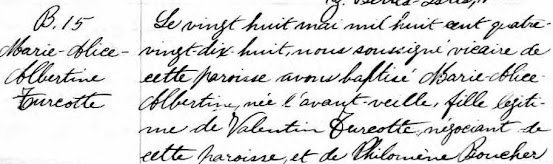 B. 15
Marie-Alice-
Albertine
Turcotte
Le vingt huit mai mil huit cent quatre-
vingt dix-huit, nous soussigné vicaire de
cette paroisse avons baptisé Marie-Alice
Albertine, née l'avant-veille, fille légiti-
me de Valentin Turcotte, négociant de
cette paroisse, et de Philomène Boucher